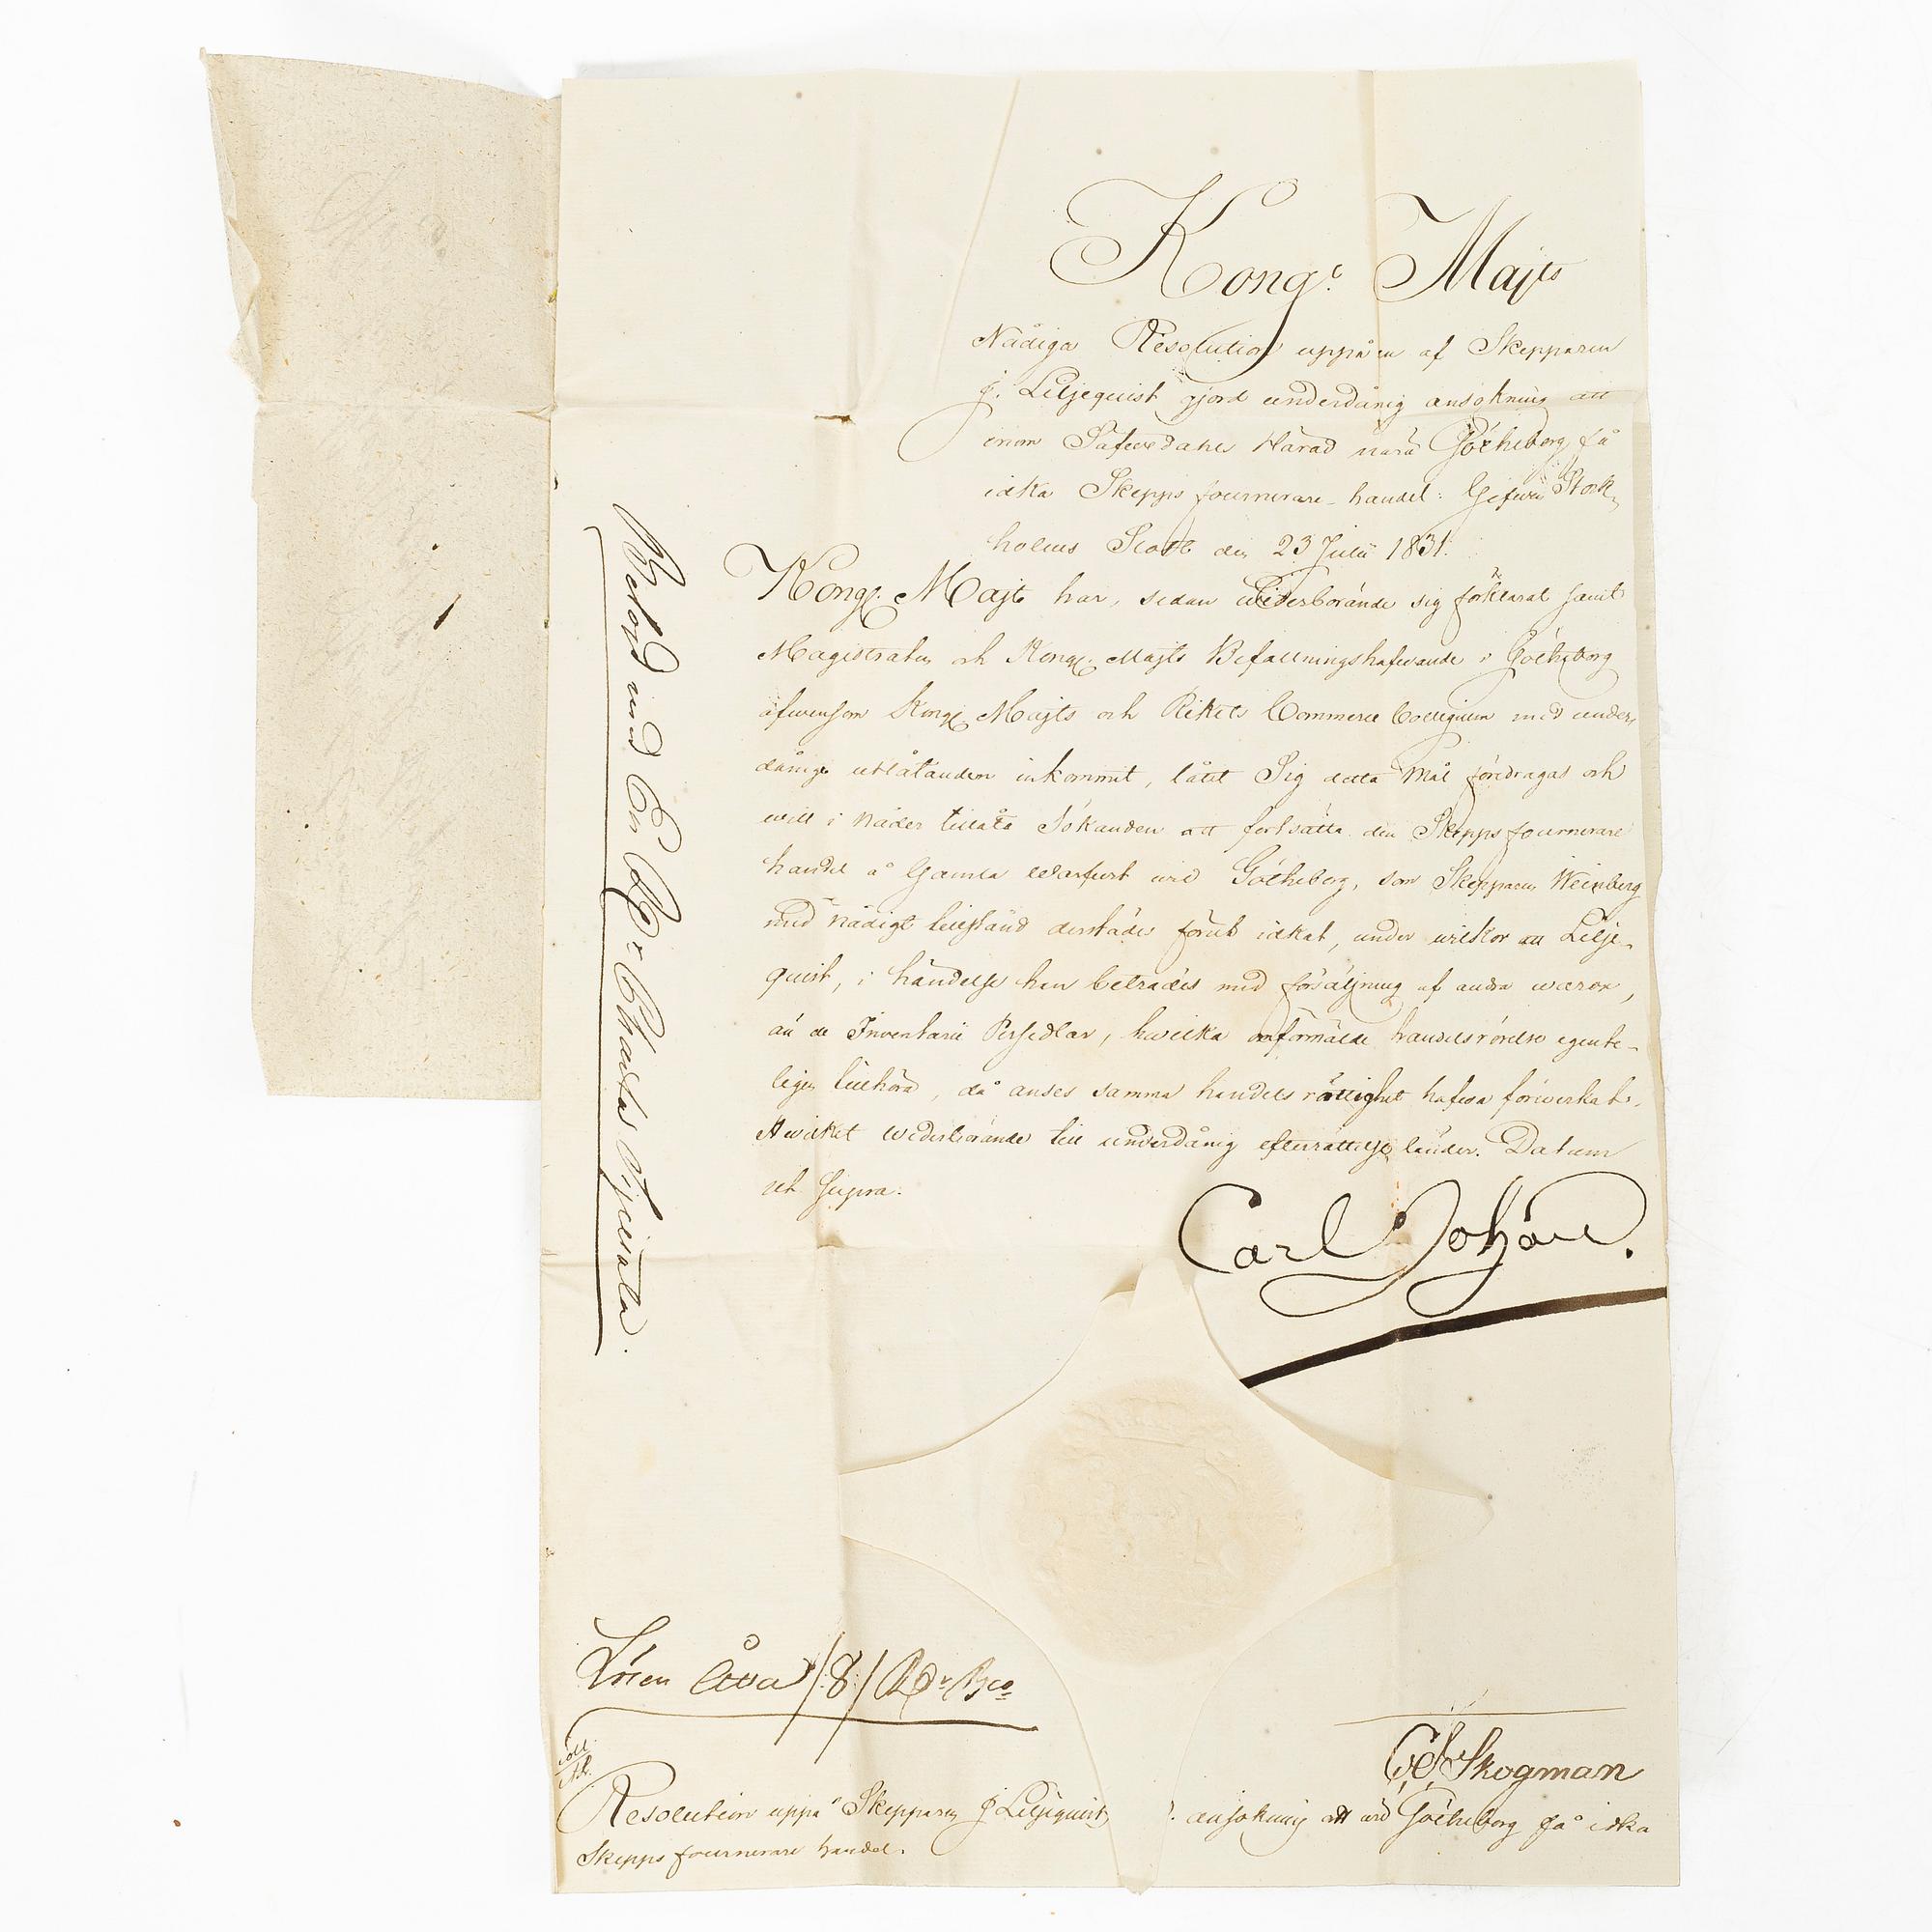 Kongl. Majts
Nådiga Resolution uppå en af Skepparen
J. Liljequist gjord underdånig ansökning att
inom Säfvedahls Härad nära Götheborg få
idka Skepps fournerare-handel: Gifwen Stock-
holms Slott den 23 Julii 1831.
Kongl. Majt har, sedan wederbörande sig förklarat samt
Magistraten och Kongl. Majts Befallningshafwande i Götheborg
äfwensom Kongl. Majts och Rikets Commerce Collegium med under-
dånige utlåtanden inkommit, låtit Sig detta Mål föredragas och
will i Nåder tillåta Sökanden att fortsätta den Skepps fournerare
handel å Gamla Warfwet wid Götheborg, som Skepparen Weinberg
med Nådigt tillstånd derstädes förut idkat, under wilkor att Lilje-
quist, i händelse han beträdes med försäljning af andra waror,
än de Inventarii Persedlar, hwilka omförmälde handelsrörelse egente-
ligen tillhöra, då anses samma handels rättighet hafwa förwerkat.
Hwilket wederbörande till underdånig efterrättelse länder. Datum
ut Supra.
Carl Johan.
Belagd med En Rdr Charta Sigillata.
Lösen Åtta /:8:/ Rdr Bco
C D Skogman
Resolution uppå Skepparen J Liljequists ansökning att wid Götheborg få idka
Skepps fournerare handel.